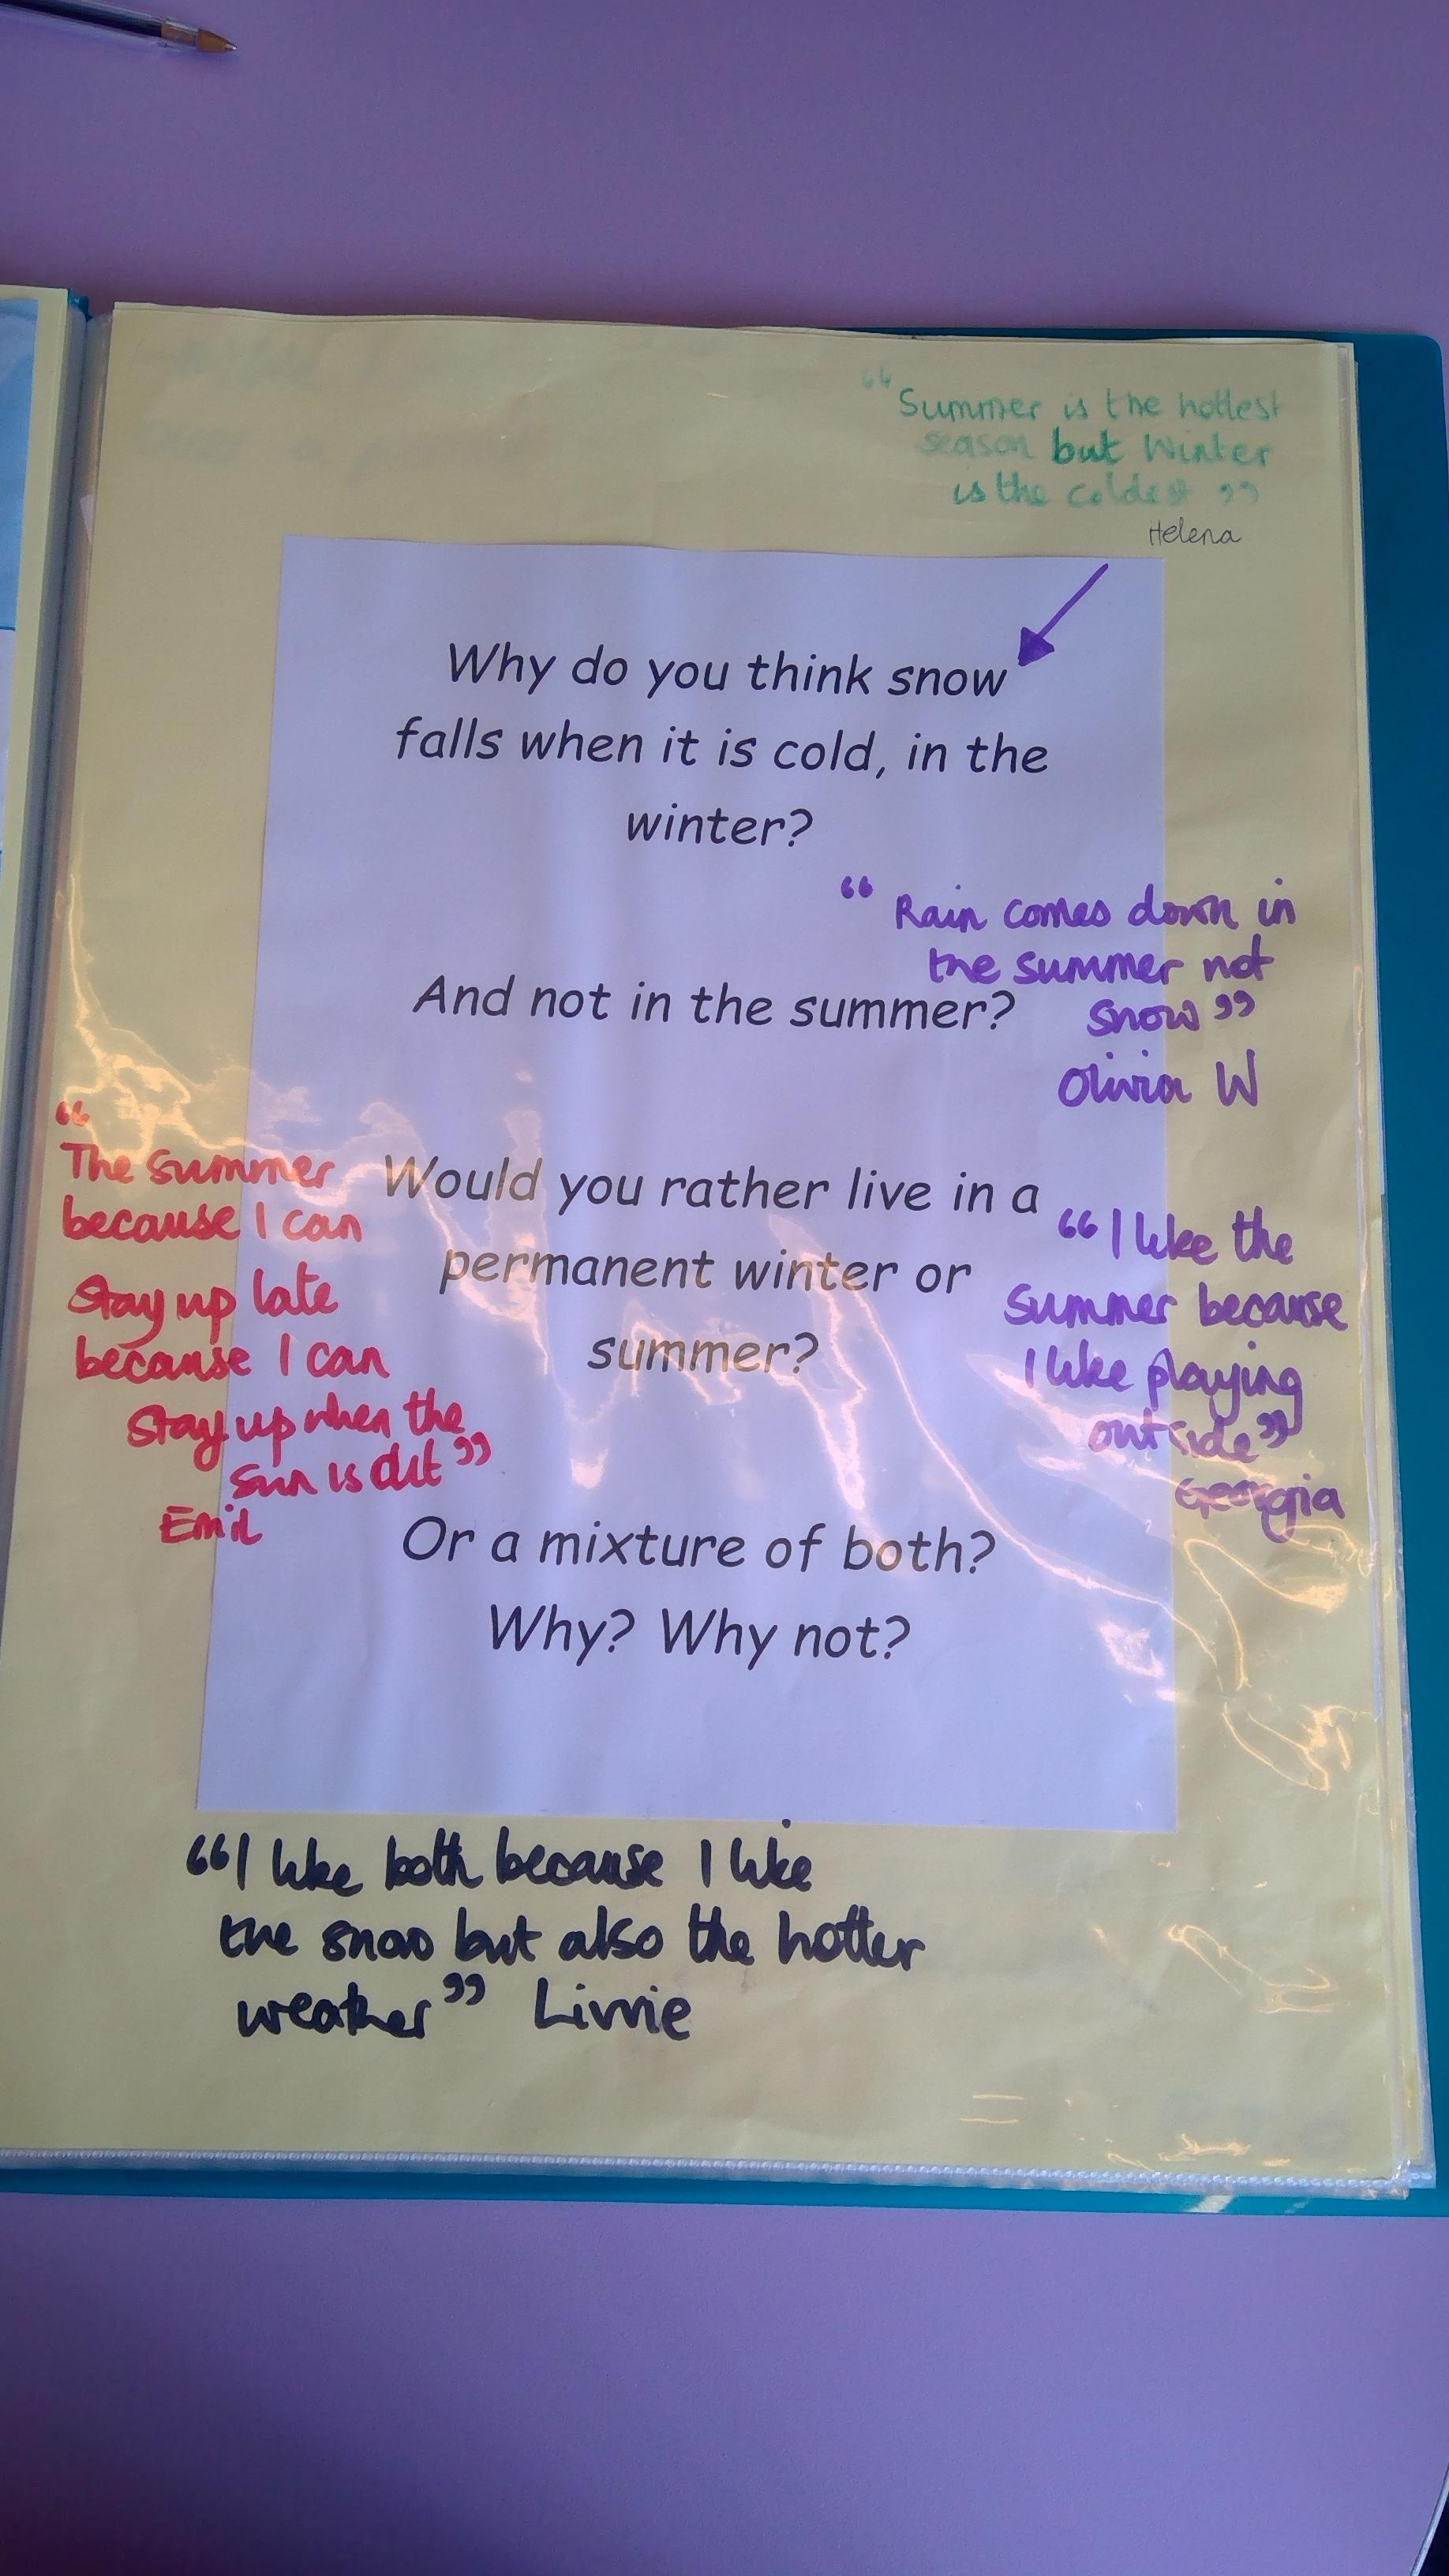 “Summer is the hottest
season but Winter
is the coldest”
Helena
Why do you think snow
falls when it is cold, in the
winter?
“Rain comes down in
the summer not
snow”
Olivia W
And not in the summer?
“
The summer
because I can
stay up late
because I can
stay up when the
sun is out”
Emil
Would you rather live in a
permanent winter or
summer?
“I like the
summer because
I like playing
outside”
Georgia
Or a mixture of both?
Why? Why not?
“I like both because I like
the snow but also the hotter
weather” Livvie